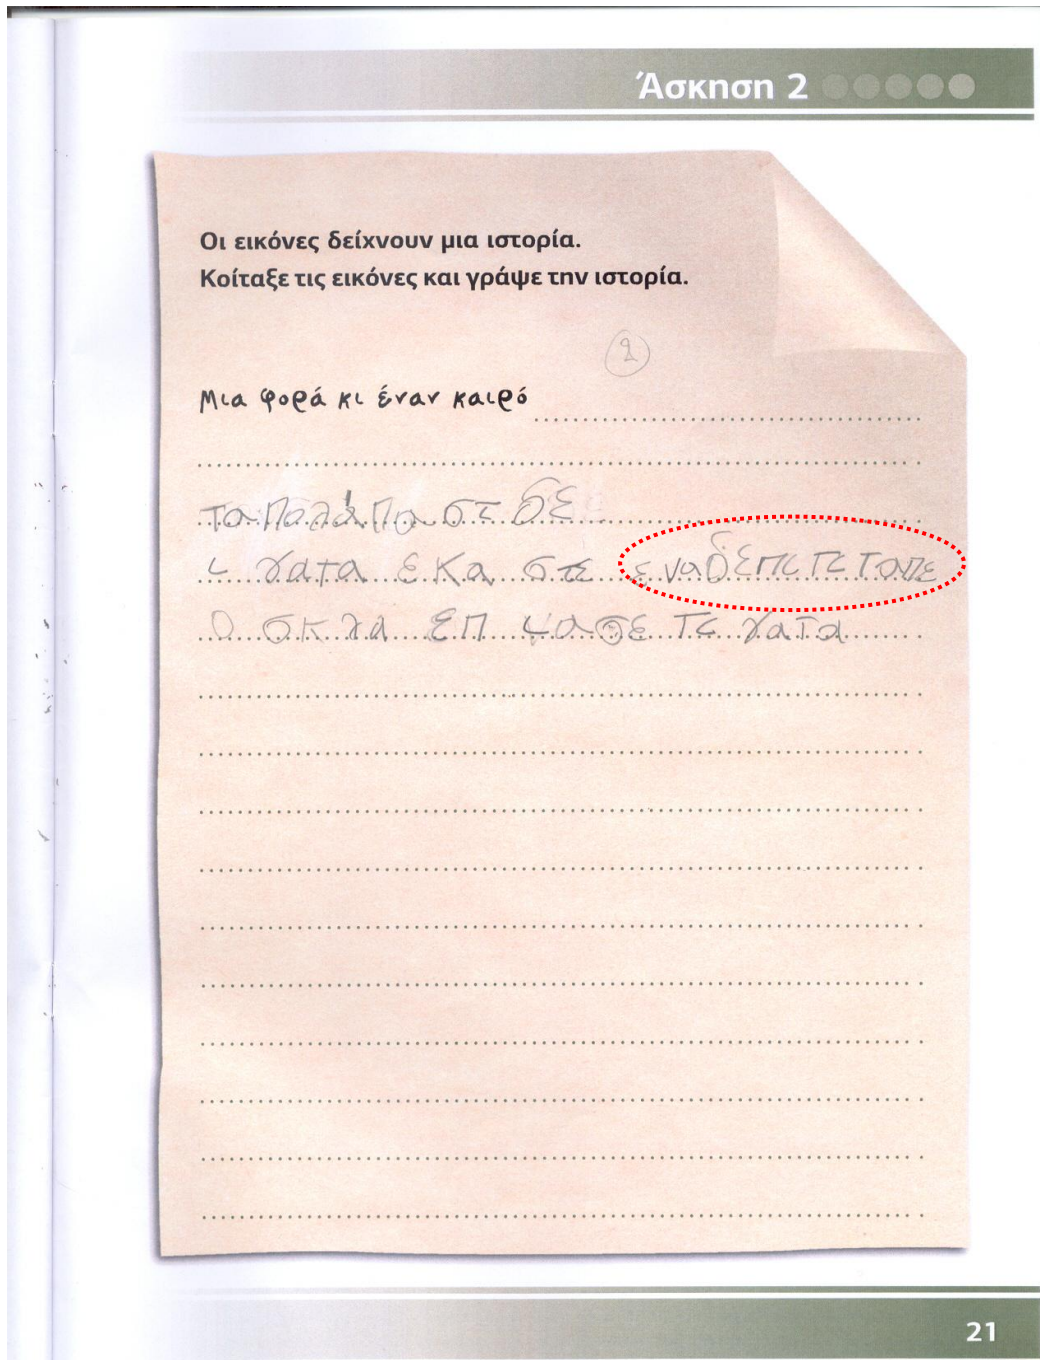 Άσκηση 2
Οι εικόνες δείχνουν μια ιστορία.
Κοίταξε τις εικόνες και γράψε την ιστορία.
2
Μια φορά κι έναν καιρό
τα πολα πα στι δε
ι γατα εκα στε ενα δεπι πι ταπε
Ο σκ λα επ ψασε τι γατα
21